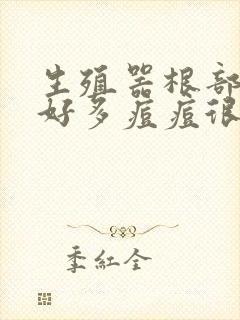 生殖器根部
好多痘痘很
季紅全